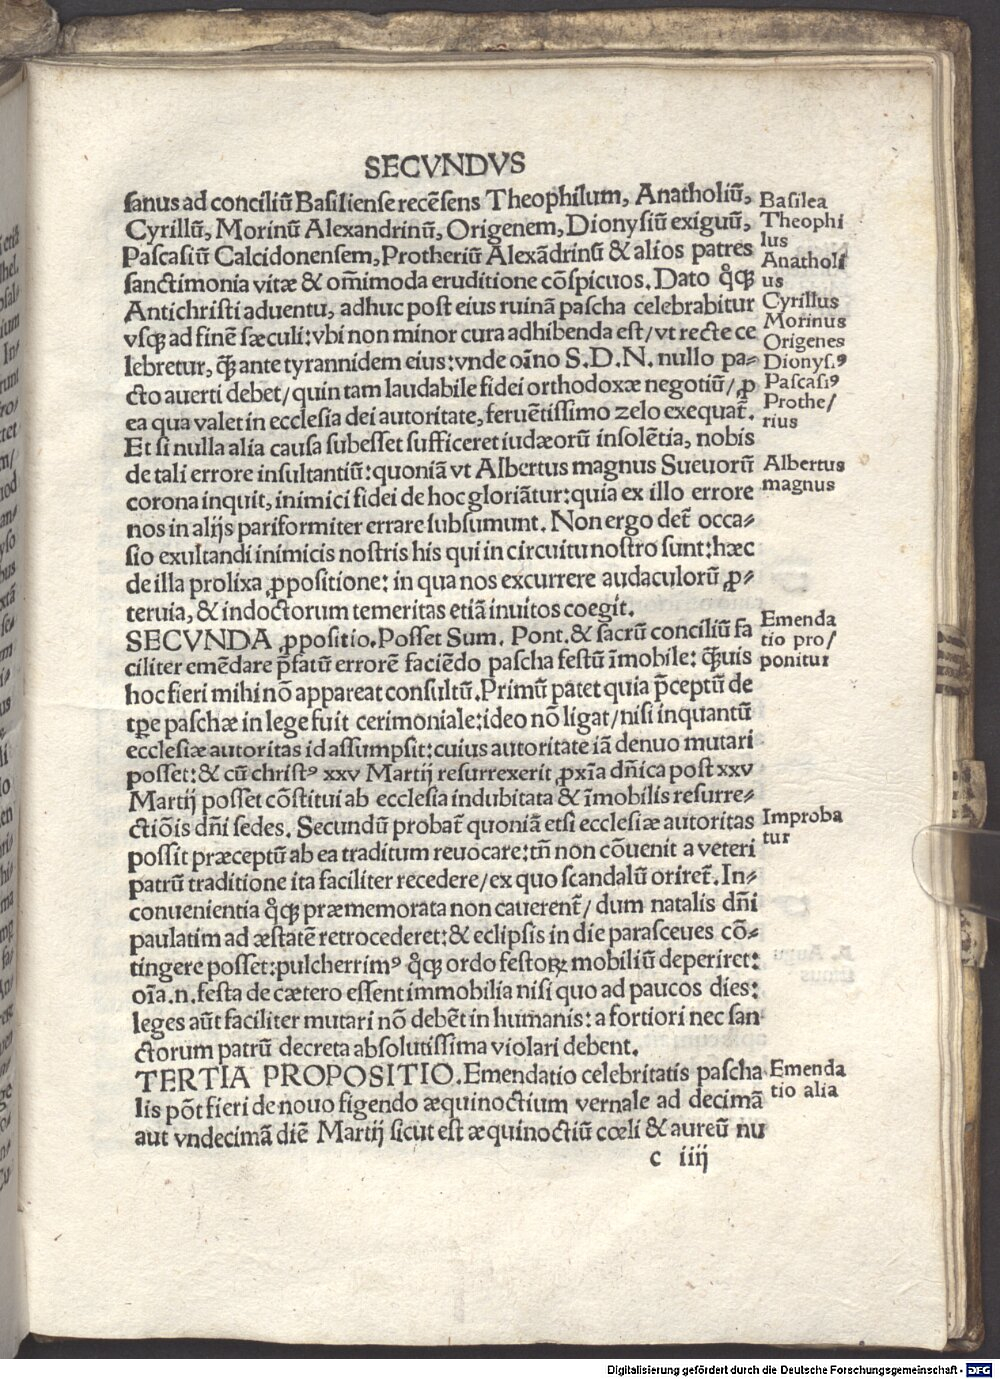 SECVNDVS
sanus ad conciliũ Basiliense recẽsens Theophilum, Anatholiũ,
Cyrillũ, Morinũ Alexandrinũ, Origenem, Dionysiũ exiguũ,
Pascasiũ Calcidonensem, Protheriũ Alexãdrinũ & alios patres
sanctimonia vitæ & om̃imoda eruditione cõspicuos. Dato q̊qꝫ
Antichristi aduentu, adhuc post eius ruinã pascha celebrabitur
vsqꝫ ad finẽ sæculi: vbi non minor cura adhibenda est/ vt recte ce
lebretur, q̃ꝫ ante tyrannidem eius: vnde oĩno S. D. N. nullo pa⸗
cto auerti debet/ quin tam laudabile fidei orthodoxæ negotiũ/ ꝓ
ea qua valet in ecclesia dei autoritate, feruẽtissimo zelo exequat̃.
Et si nulla alia causa subesset sufficeret iudæorũ insolẽtia, nobis
de tali errore insultantiũ: quoniã vt Albertus magnus Sueuorũ
corona inquit, inimici fidei de hoc gloriãtur: quia ex illo errore
nos in alijs pariformiter errare subsumunt. Non ergo det̃ occa⸗
sio exultandi inimicis nostris his qui in circuitu nostro sunt: hæc
de illa prolixa ꝓpositione: in qua nos excurrere audaculorũ ꝓ⸗
teruia, & indoctorum temeritas etiã inuitos coegit.
SECVNDA ꝓpositio. Posset Sum. Pont. & sacrũ conciliũ fa
ciliter emẽdare p̃fatũ errorẽ faciẽdo pascha festũ ĩmobile: q̃ꝫuis
hoc fieri mihi nõ appareat consultũ. Primũ patet quia p̃ceptũ de
tꝑe paschæ in lege fuit cerimoniale: ideo nõ ligat/ nisi inquantũ
ecclesiæ autoritas id assumpsit: cuius autoritate iã denuo mutari
posset: & cũ christꝰ xxv Martij resurrexerit ꝓxĩa dñica post xxv
Martij posset cõstitui ab ecclesia indubitata & ĩmobilis resurre⸗
ctiõis dñi sedes. Secundũ probat̃ quoniã etsi ecclesiæ autoritas
possit præceptũ ab ea traditum reuocare: tñ non cõuenit a veteri
patrũ traditione ita faciliter recedere/ ex quo scandalũ oriret̃. In⸗
conuenientia q̊qꝫ præmemorata non cauerent̃/ dum natalis dñi
paulatim ad æstatẽ retrocederet: & eclipsis in die parasceues cõ⸗
tingere posset: pulcherrimꝰ q̊qꝫ ordo festoꝝ mobiliũ deperiret:
oĩa.n. festa de cætero essent immobilia nisi quo ad paucos dies:
leges aũt faciliter mutari nõ debẽt in humanis: a fortiori nec san
ctorum patrũ decreta absolutissima violari debent.
TERTIA PROPOSITIO. Emendatio celebritatis pascha
lis põt fieri de nouo figendo æquinoctium vernale ad decimã
aut vndecimã diẽ Martij sicut est æquinoctiũ cœli & aureũ nu
c iiij
Basilea
Theophi
lus
Anatholi
us
Cyrillus
Morinus
Origenes
Dionys.ꝰ
Pascasiꝰ
Prothe/
rius
Albertus
magnus
Emenda
tio pro/
ponitur
Improba
tur
Emenda
tio alia
Digitalisierung gefördert durch die Deutsche Forschungsgemeinschaft - DFG